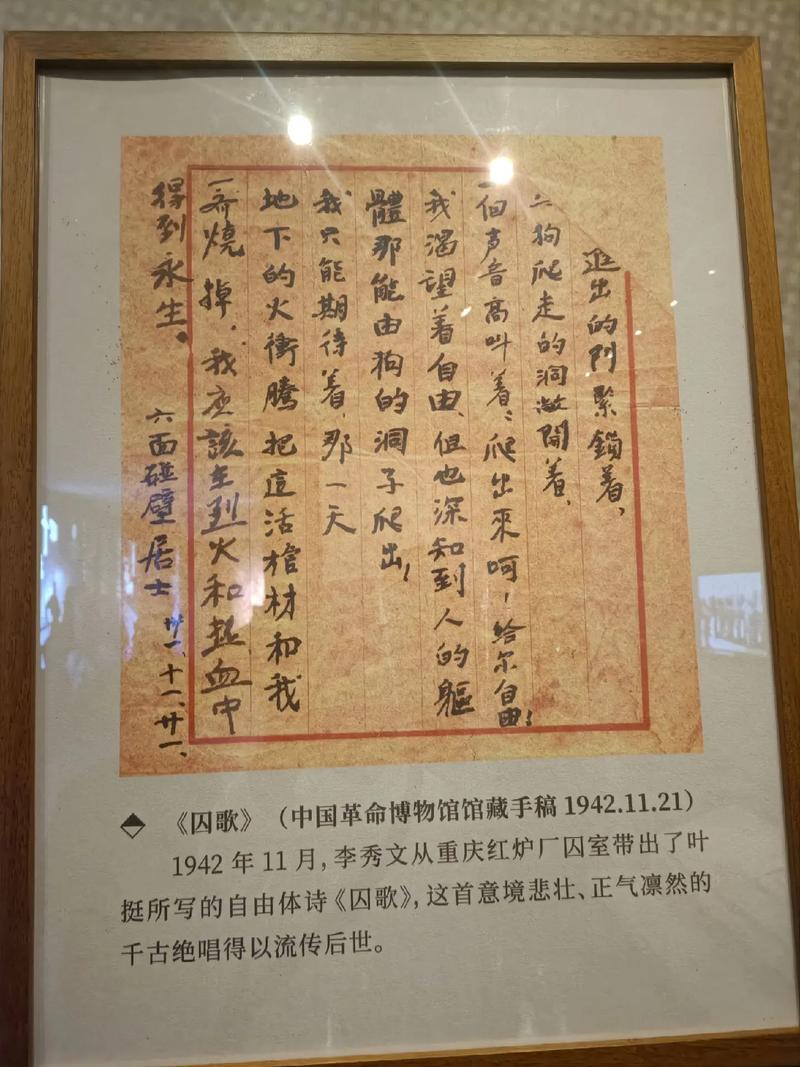 進出的門緊鎖着，
狗爬走的洞敞開着、
一個声音高叫着：爬出來呵，給尔自由！
我渴望着自由、但也深知到人的軀
體那能由狗的洞子爬出！
我只能期待着、那一天
地下的火衝騰把這活棺材和我
一齊燒掉，我应該在烈火和热血中
得到永生。
六面碰壁居士 卅一、十一、廿一、
《囚歌》（中国革命博物馆馆藏手稿 1942.11.21）
1942 年 11 月，李秀文从重庆红炉厂囚室带出了叶
挺所写的自由体诗《囚歌》，这首意境悲壮、正气凛然的
千古绝唱得以流传后世。